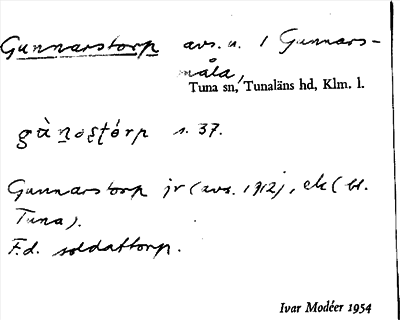 Gunnarstorp avs. u. 1 Gunnars-
måla,
Tuna sn, Tunaläns hd, Klm. l.
gàṉəʂʈórp s. 37.
Gunnarstorp jr (avs. 1912), ek (bl.
Tuna).
F.d. soldattorp.
Ivar Modéer 1954